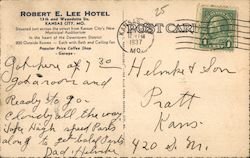 ROBERT E. LEE HOTEL
13th and Wyandotte Sts.
KANSAS CITY, MO.
Situated just across the street from Kansas City's New
Municipal Auditorium
In the heart of the Downtown District
200 Outside Rooms - Each with Bath and Ceiling Fan
Popular Price Coffee Shop
- Garage -
POST CARD
KANSAS
1937
MO.
25
Got here at 7 30
Got a room and
Ready to go
Cloudy all the way
speed Parts
along to get
Dad. Helmke
Helmke & Son
Pratt
Kans.
420 S. M.